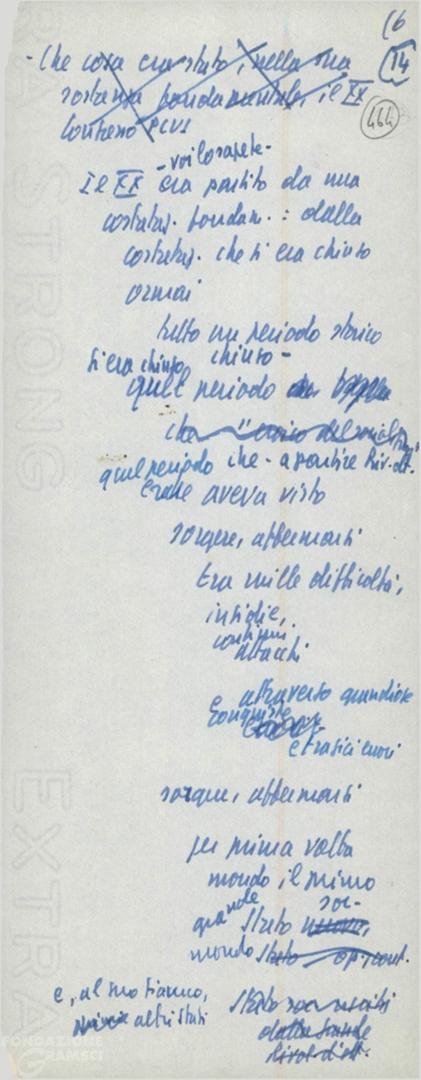 16
14
464
- Che cosa era stato, nella sua
sostanza fondamentale, il XX
Congresso PCUS
- voi lo sapete -
Il XX era partito da una
costataz. fondam.: dalla
costataz. che si era chiuso
ormai
tutto un periodo storico
si era chiuso chiuso -
quel periodo
che
quel periodo che - a partire Riv. ott.
aveva visto
sorgere, affermarsi
tra mille difficoltà,
insidie,
continui
attacchi
e attraverso grandiose
conquiste
e tragici errori
sorgere, affermarsi
per prima volta
mondo il primo
grande Stato soc.
mondo Stato op. cont.
e, al suo fianco,
altri Stati
Stato
dalla grande
Rivol. d'ott.
EXTRA STRONG
EXTRA
FONDAZIONE
GRAMSCI